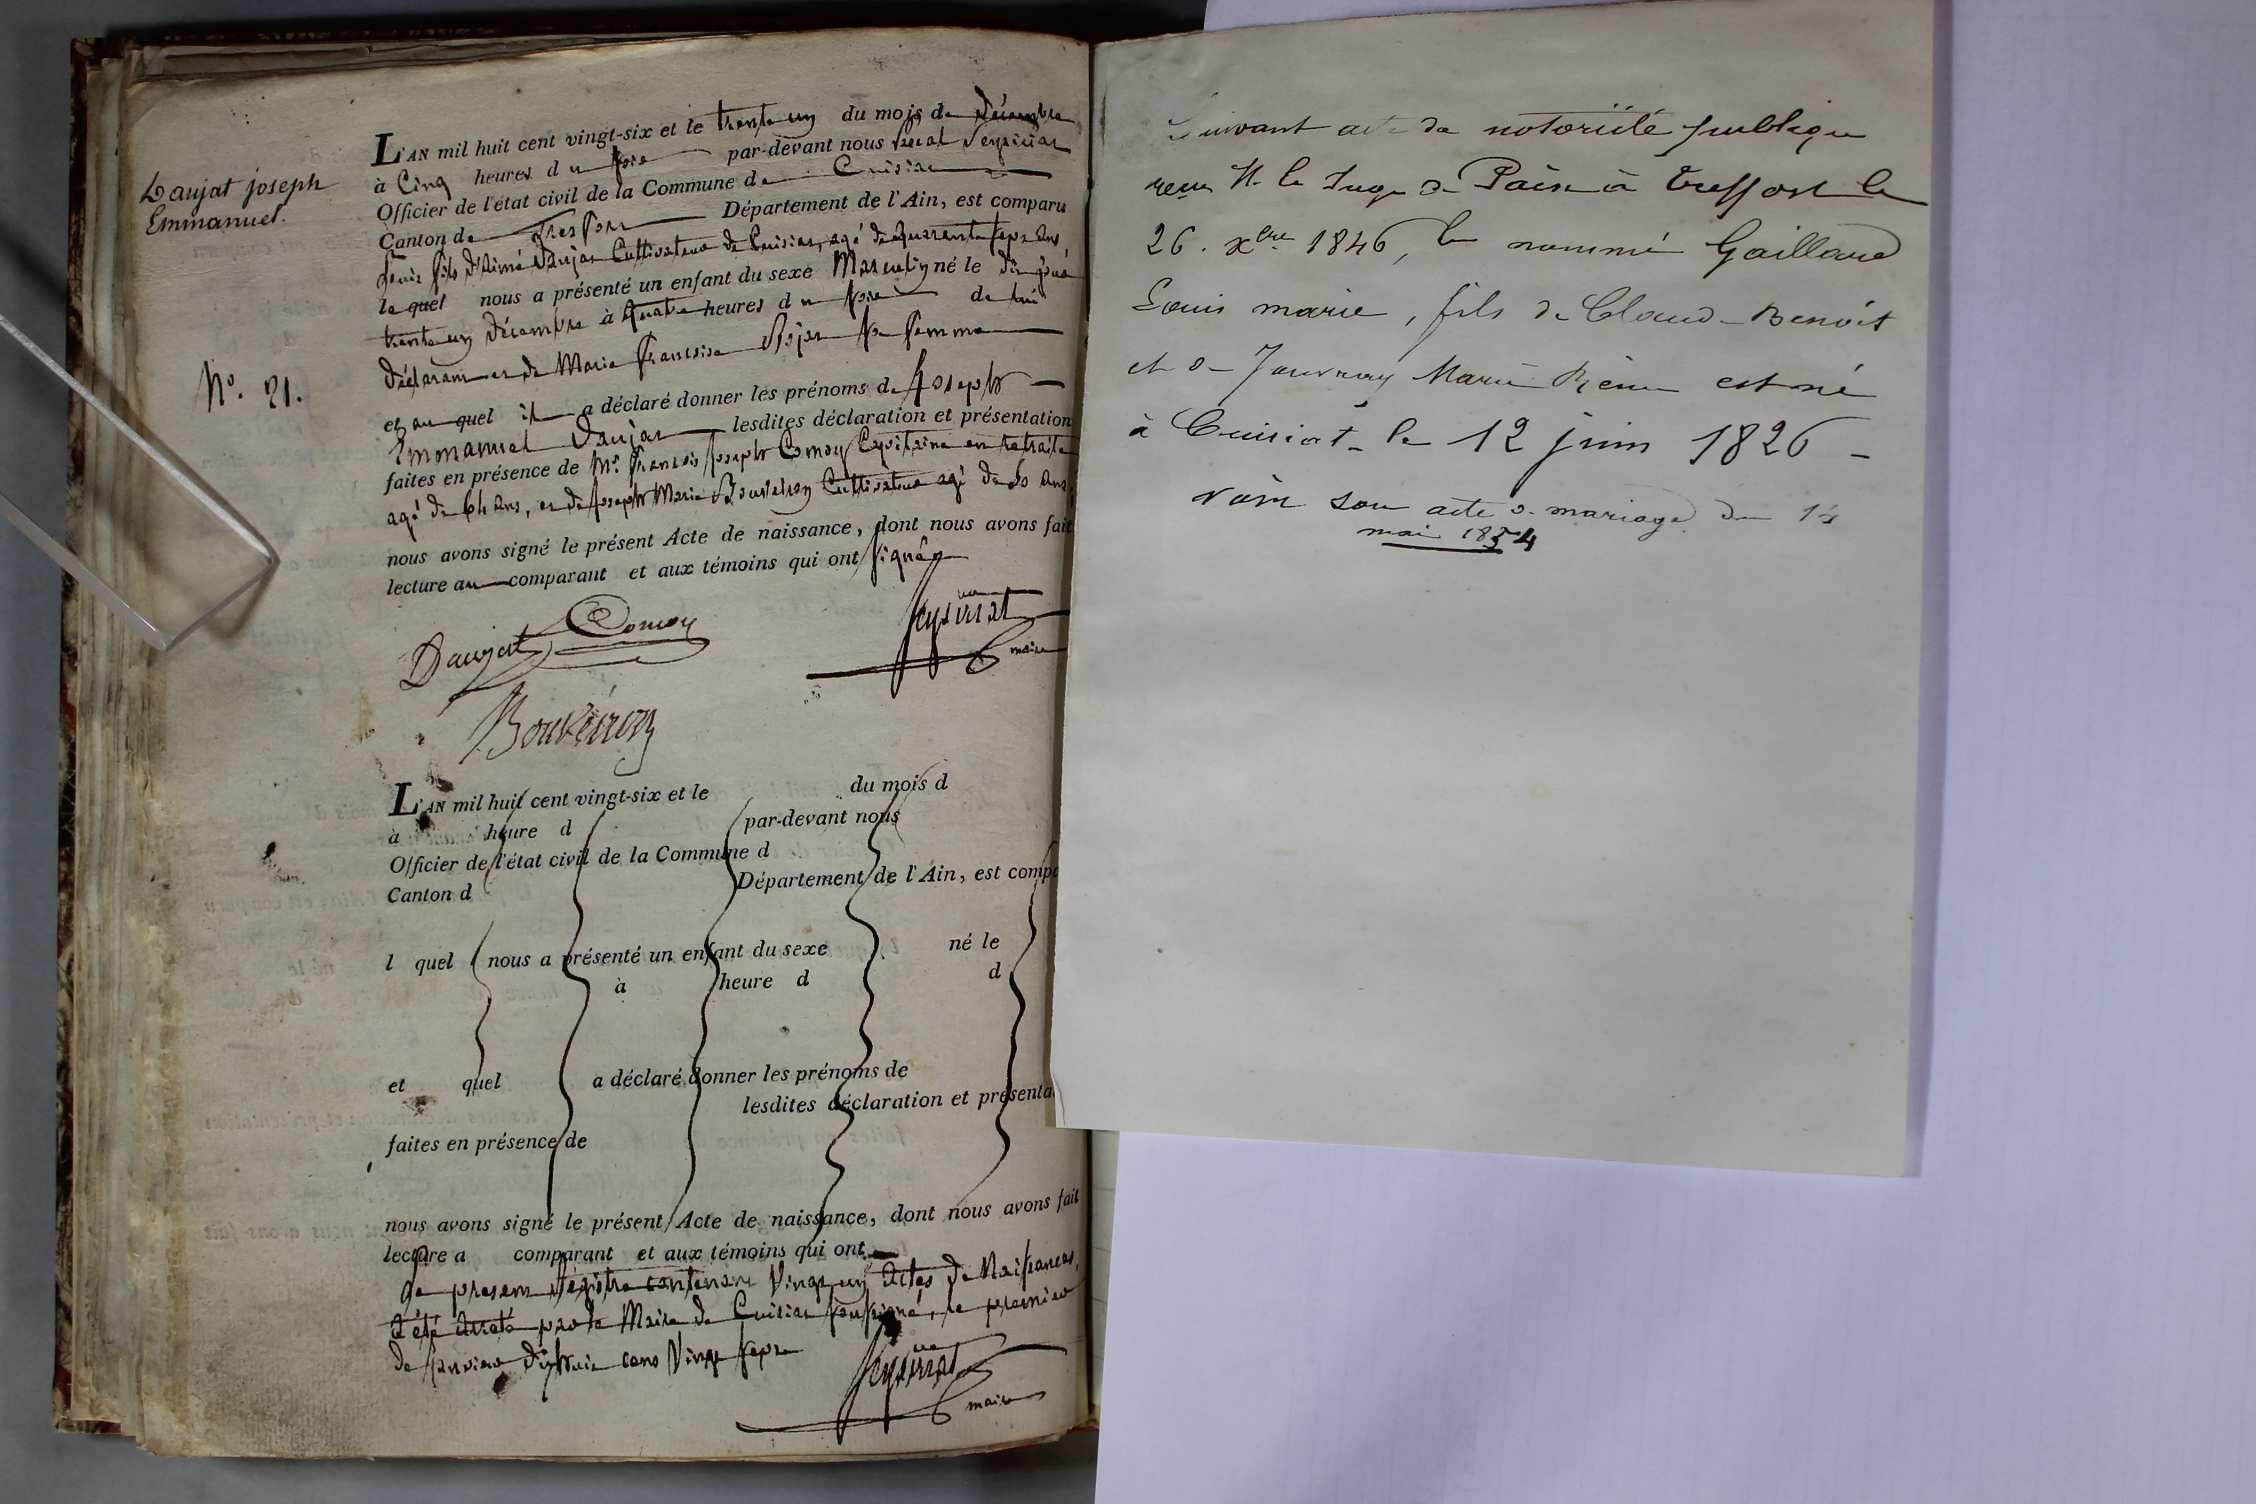 Daujat joseph
Emmanuel.
N.º 21.
L'AN mil huit cent vingt-six et le trente un du mois de Décembre
à Cinq heures du soir par-devant nous
Officier de l'état civil de la Commune de Cuisiat
Canton de Treffort Département de l'Ain, est comparu
fils d'Aimé Daujat Cultivateur de Cuisiat, agé de quarante sept ans,
le quel nous a présenté un enfant du sexe Masculin né le dit jour
trente un Décembre à quatre heures du soir de lui
déclarant et de Marie Françoise sa femme
et au quel il a déclaré donner les prénoms de Joseph
Emmanuel Daujat lesdites déclaration et présentation
faites en présence de Mr. François Joseph Comoy Capitaine en retraite
agé de 64 ans, et de Joseph Marie Bouveiron Cultivateur agé de 50 ans,
nous avons signé le présent Acte de naissance, dont nous avons fait
lecture au comparant et aux témoins qui ont signé
Daujat Comoy
maire
Bouveiron
L'AN mil huit cent vingt-six et le du mois d
à heure d par-devant nous
Officier de l'état civil de la Commune d
Canton d Département de l'Ain, est compa
l quel nous a présenté un enfant du sexe né le
à heure d d
et quel a déclaré donner les prénoms de
lesdites déclaration et présenta
faites en présence de
nous avons signé le présent Acte de naissance, dont nous avons fait
lecture a comparant et aux témoins qui ont
Le present Régistre contenant Vingt un Actes de Naissances,
a été Arrété par le Maire de Cuisiat soussigné, le premier
de Janvier dix huit cent Vingt sept
maire
Suivant acte de notoriété publique
reçu M. le Juge de Paix à Treffort le
26. xbre 1846, le nommé Gaillard
Louis marie, fils de Claude-Benoit
et de Jouvray Marie Reine est né
à Cuisiat le 12 juin 1826 -
voir son acte de mariage du 14
mai 1854